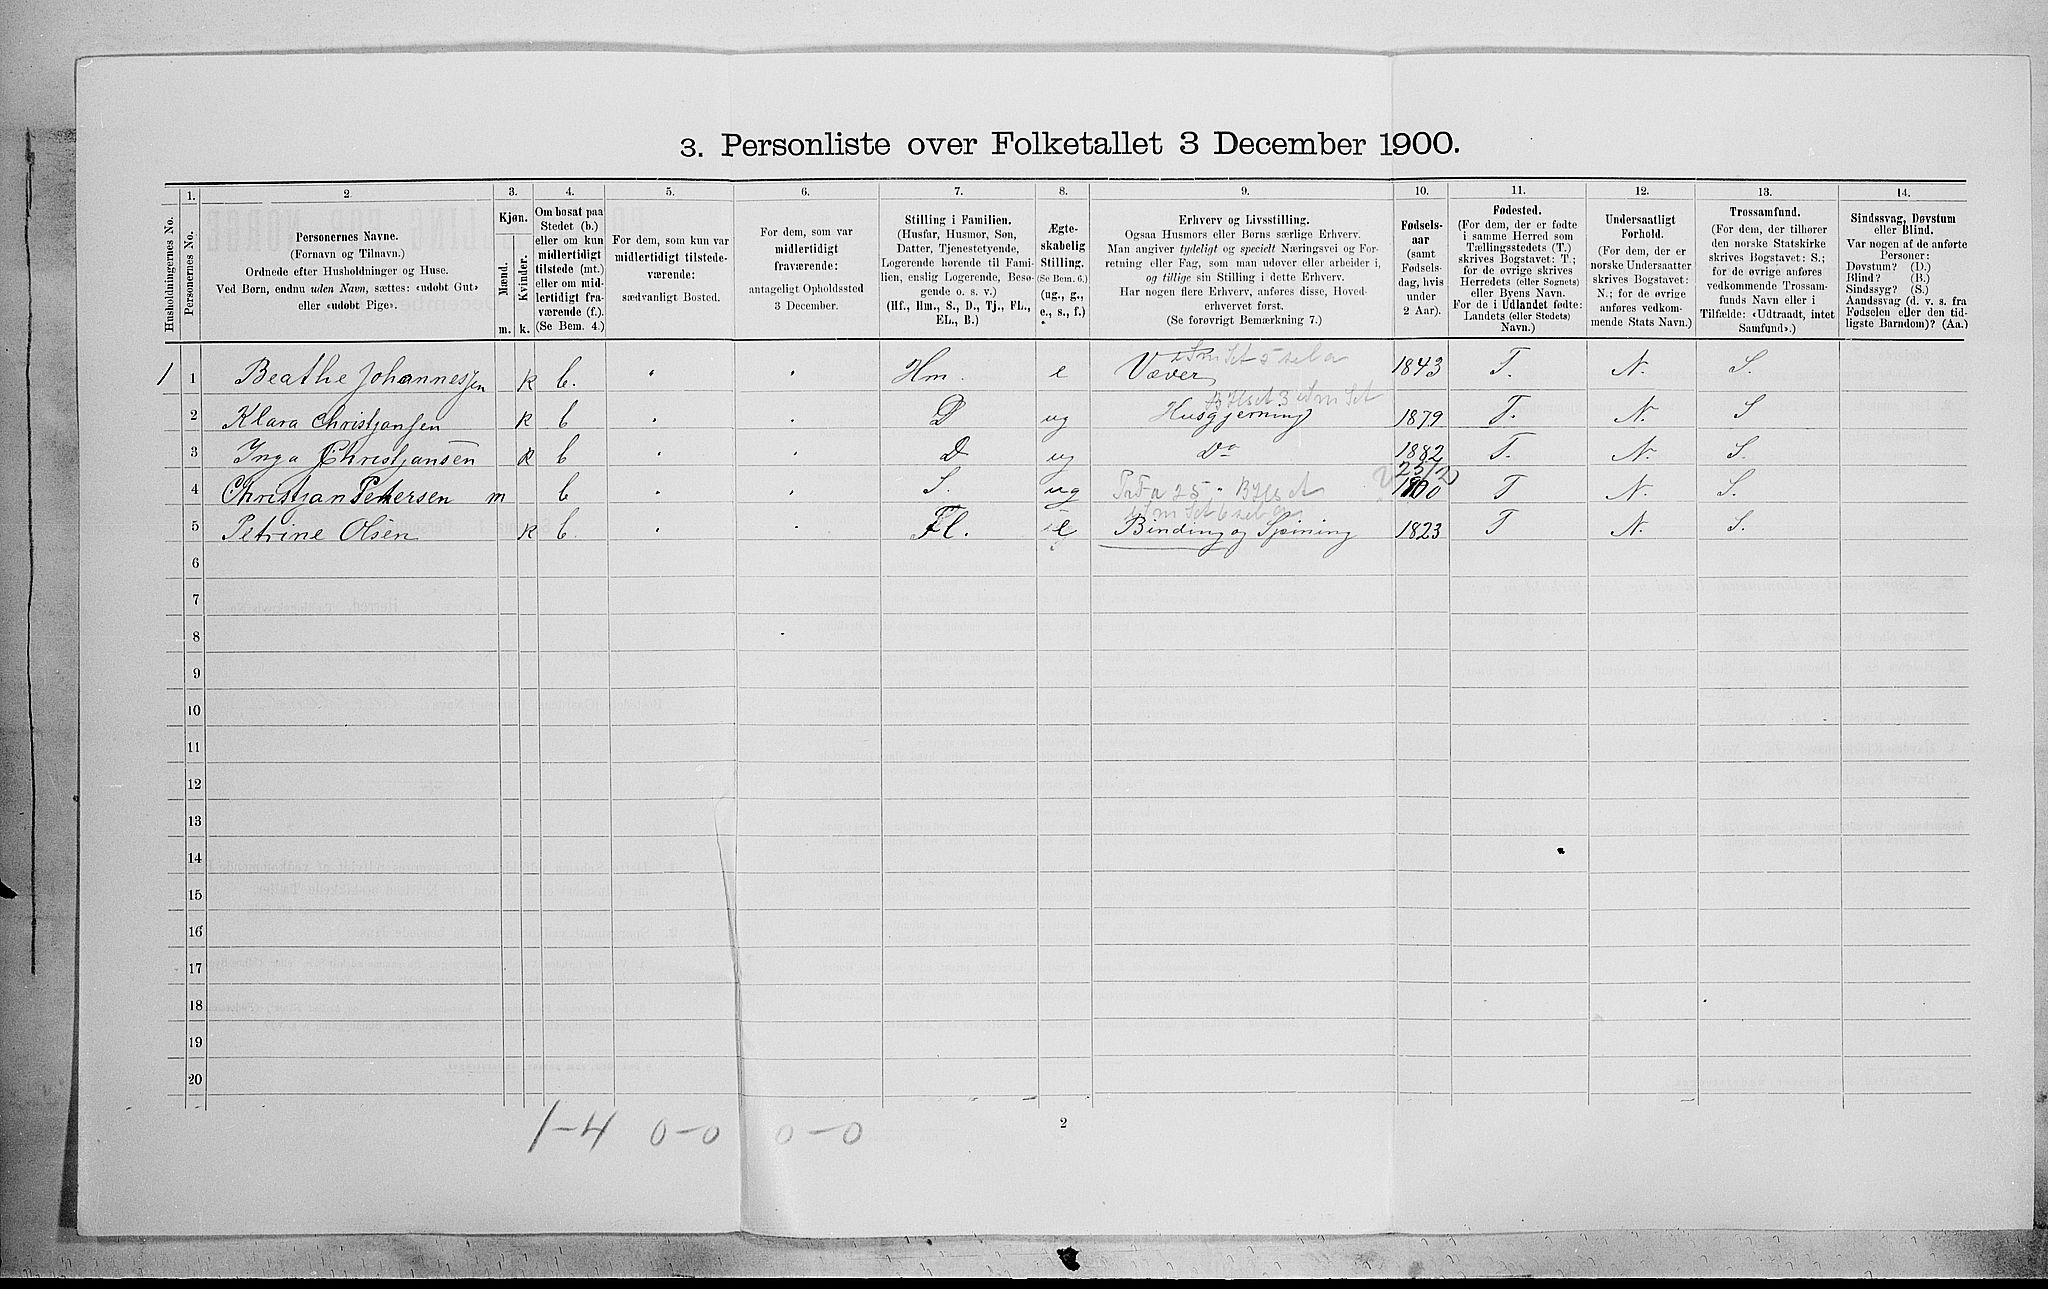 3. Personliste over Folketallet 3 December 1900.
1. 2. 3. 4. 5. 6. 7. 8. 9. 10. 11. 12. 13. 14.
Husholdningernes No.
Personernes No.
Personernes Navne.
(Fornavn og Tilnavn.)
Ordnede efter Husholdninger og Huse.
Ved Børn, endnu uden Navn, sættes: «udøbt Gut»
eller «udøbt Pige».
Kjøn.
Mænd.
Kvinder.
m. k.
Om bosat paa
Stedet (b.)
eller om kun
midlertidigt
tilstede (mt.)
eller om mid-
lertidigt fra-
værende (f.).
(Se Bem. 4.)
For dem, som kun var
midlertidigt tilstede-
værende:
sædvanligt Bosted.
For dem, som var
midlertidigt
fraværende:
antageligt Opholdssted
3 December.
Stilling i Familien.
(Husfar, Husmor, Søn,
Datter, Tjenestetyende,
Logerende hørende til Fami-
lien, enslig Logerende, Besø-
gende o. s. v.)
(Hf., Hm., S., D., Tj., FL.,
EL., B.)
Ægte-
skabelig
Stilling.
(Se Bem. 6.)
(ug., g.,
e., s., f.)
Erhverv og Livsstilling.
Ogsaa Husmors eller Børns særlige Erhverv.
Man angiver tydeligt og specielt Næringsvei og For-
retning eller Fag, som man udøver eller arbeider i,
og tillige sin Stilling i dette Erhverv.
Har nogen flere Erhverv, anføres disse, Hoved-
erhvervet først.
(Se forøvrigt Bemærkning 7.)
Fødsels-
aar
(samt
Fødsels-
dag, hvis
under
2 Aar).
Fødested.
(For dem, der er fødte
i samme Herred som
Tællingsstedets (T.)
skrives Bogstavet: T.;
for de øvrige skrives
Herredets (eller Sognets)
eller Byens Navn.
For de i Udlandet fødte:
Landets (eller Stedets)
Navn.)
Undersaatligt
Forhold.
(For dem, der er
norske Undersaatter
skrives Bogstavet:
N.; for de øvrige
anføres vedkom-
mende Stats Navn.)
Trossamfund.
(For dem, der tilhører
den norske Statskirke
skrives Bogstavet: S.;
for de øvrige anføres
vedkommende Trossam-
funds Navn eller i
Tilfælde: «Udtraadt, intet
Samfund».)
Sindssvag, Døvstum
eller Blind.
Var nogen af de anførte
Personer:
Døvstum? (D.)
Blind? (B.)
Sindssyg? (S.)
Aandssvag (d. v. s. fra
Fødselen eller den tid-
ligste Barndom)? (Aa.)
1 1 Beathe Johannessen k b. Hm. e Væver 1843 T. N. S.
2 Klara Christjansen k b D ug Husgjerning 1879 T. N. S
3 Inga Christjansen k b D ug Do 1882 T. N. S.
4 Christjan Pettersen m b S. ug 1900 T N. S.
5 Petrine Olsen k b. Fl. e Binding og Spining 1823 T N. S.
6
7
8
9
10
11
12
13
14
15
16
17
18
19
20
1-4 0-0 0-0
2